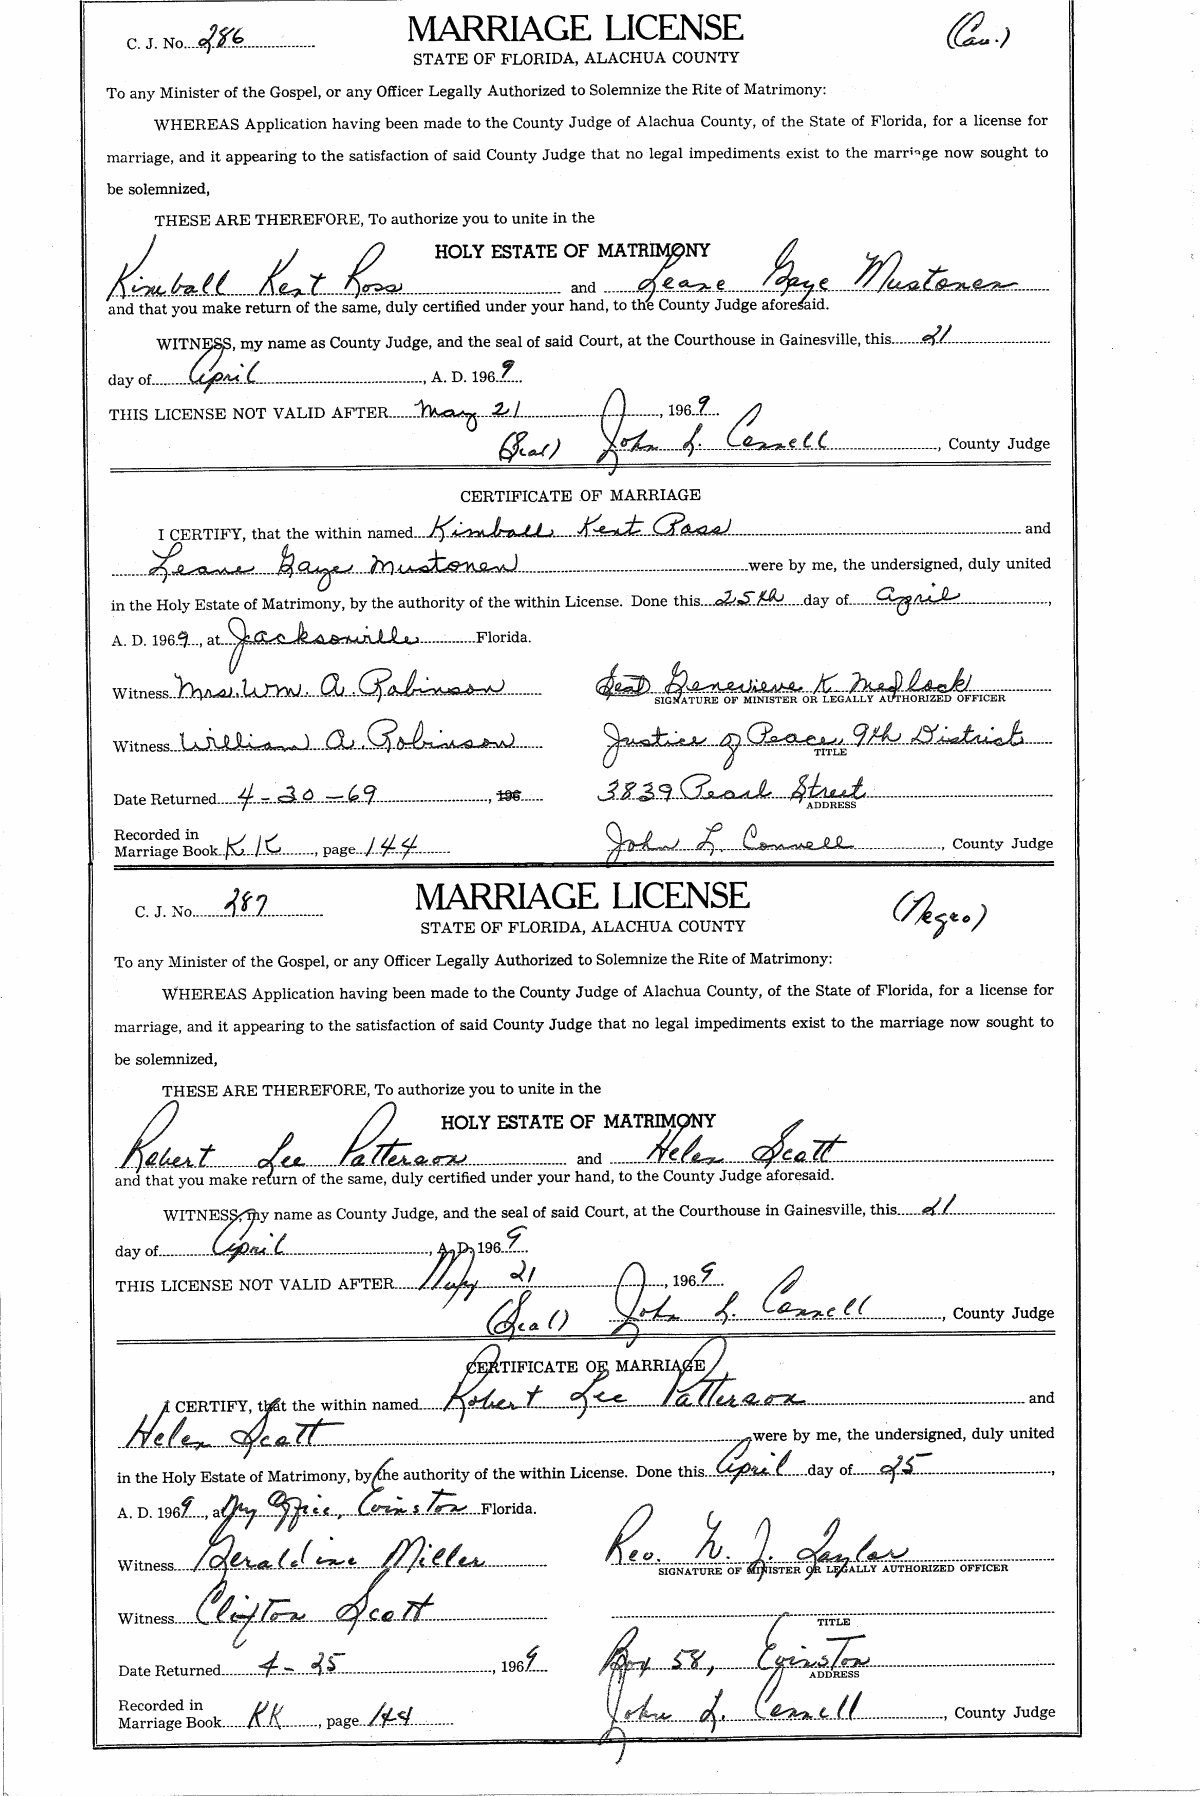 C. J. No. 286 MARRIAGE LICENSE (Cau.)
STATE OF FLORIDA, ALACHUA COUNTY
To any Minister of the Gospel, or any Officer Legally Authorized to Solemnize the Rite of Matrimony:
WHEREAS Application having been made to the County Judge of Alachua County, of the State of Florida, for a license for
marriage, and it appearing to the satisfaction of said County Judge that no legal impediments exist to the marriage now sought to
be solemnized,
THESE ARE THEREFORE, To authorize you to unite in the
HOLY ESTATE OF MATRIMONY
Kimball Kent Ross and Leane Gaye Mustonen
and that you make return of the same, duly certified under your hand, to the County Judge aforesaid.
WITNESS, my name as County Judge, and the seal of said Court, at the Courthouse in Gainesville, this 21
day of April, A. D. 1969
THIS LICENSE NOT VALID AFTER May 21, 1969
(Seal) John L. Connell, County Judge
CERTIFICATE OF MARRIAGE
I CERTIFY, that the within named Kimball Kent Ross and
Leane Gaye Mustonen were by me, the undersigned, duly united
in the Holy Estate of Matrimony, by the authority of the within License. Done this 25th day of April,
A. D. 1969, at Jacksonville Florida.
Witness Mrs. Wm. A Robinson (Seal) Genevieve K. Medlock
SIGNATURE OF MINISTER OR LEGALLY AUTHORIZED OFFICER
Witness William A. Robinson Justice of Peace, 9th District
TITLE
Date Returned 4-30-69, 196 3839 Pearl Street
ADDRESS
Recorded in
Marriage Book KK, page 144 John L. Connell, County Judge
C. J. No. 287 MARRIAGE LICENSE (Negro)
STATE OF FLORIDA, ALACHUA COUNTY
To any Minister of the Gospel, or any Officer Legally Authorized to Solemnize the Rite of Matrimony:
WHEREAS Application having been made to the County Judge of Alachua County, of the State of Florida, for a license for
marriage, and it appearing to the satisfaction of said County Judge that no legal impediments exist to the marriage now sought to
be solemnized,
THESE ARE THEREFORE, To authorize you to unite in the
HOLY ESTATE OF MATRIMONY
Robert Lee Patterson and Helen Scott
and that you make return of the same, duly certified under your hand, to the County Judge aforesaid.
WITNESS, my name as County Judge, and the seal of said Court, at the Courthouse in Gainesville, this 21
day of April, A. D. 1969
THIS LICENSE NOT VALID AFTER May 21, 1969
(Seal) John L. Connell, County Judge
CERTIFICATE OF MARRIAGE
I CERTIFY, that the within named Robert Lee Patterson and
Helen Scott were by me, the undersigned, duly united
in the Holy Estate of Matrimony, by the authority of the within License. Done this April day of 25,
A. D. 1969, at My Office, Evinston Florida.
Witness Geraldine Miller Rev. N. J. Taylor
SIGNATURE OF MINISTER OR LEGALLY AUTHORIZED OFFICER
Witness Clifton Scott
TITLE
Date Returned 4-25, 1969 Box 58, Evinston
ADDRESS
Recorded in
Marriage Book KK, page 144 John L. Connell, County Judge